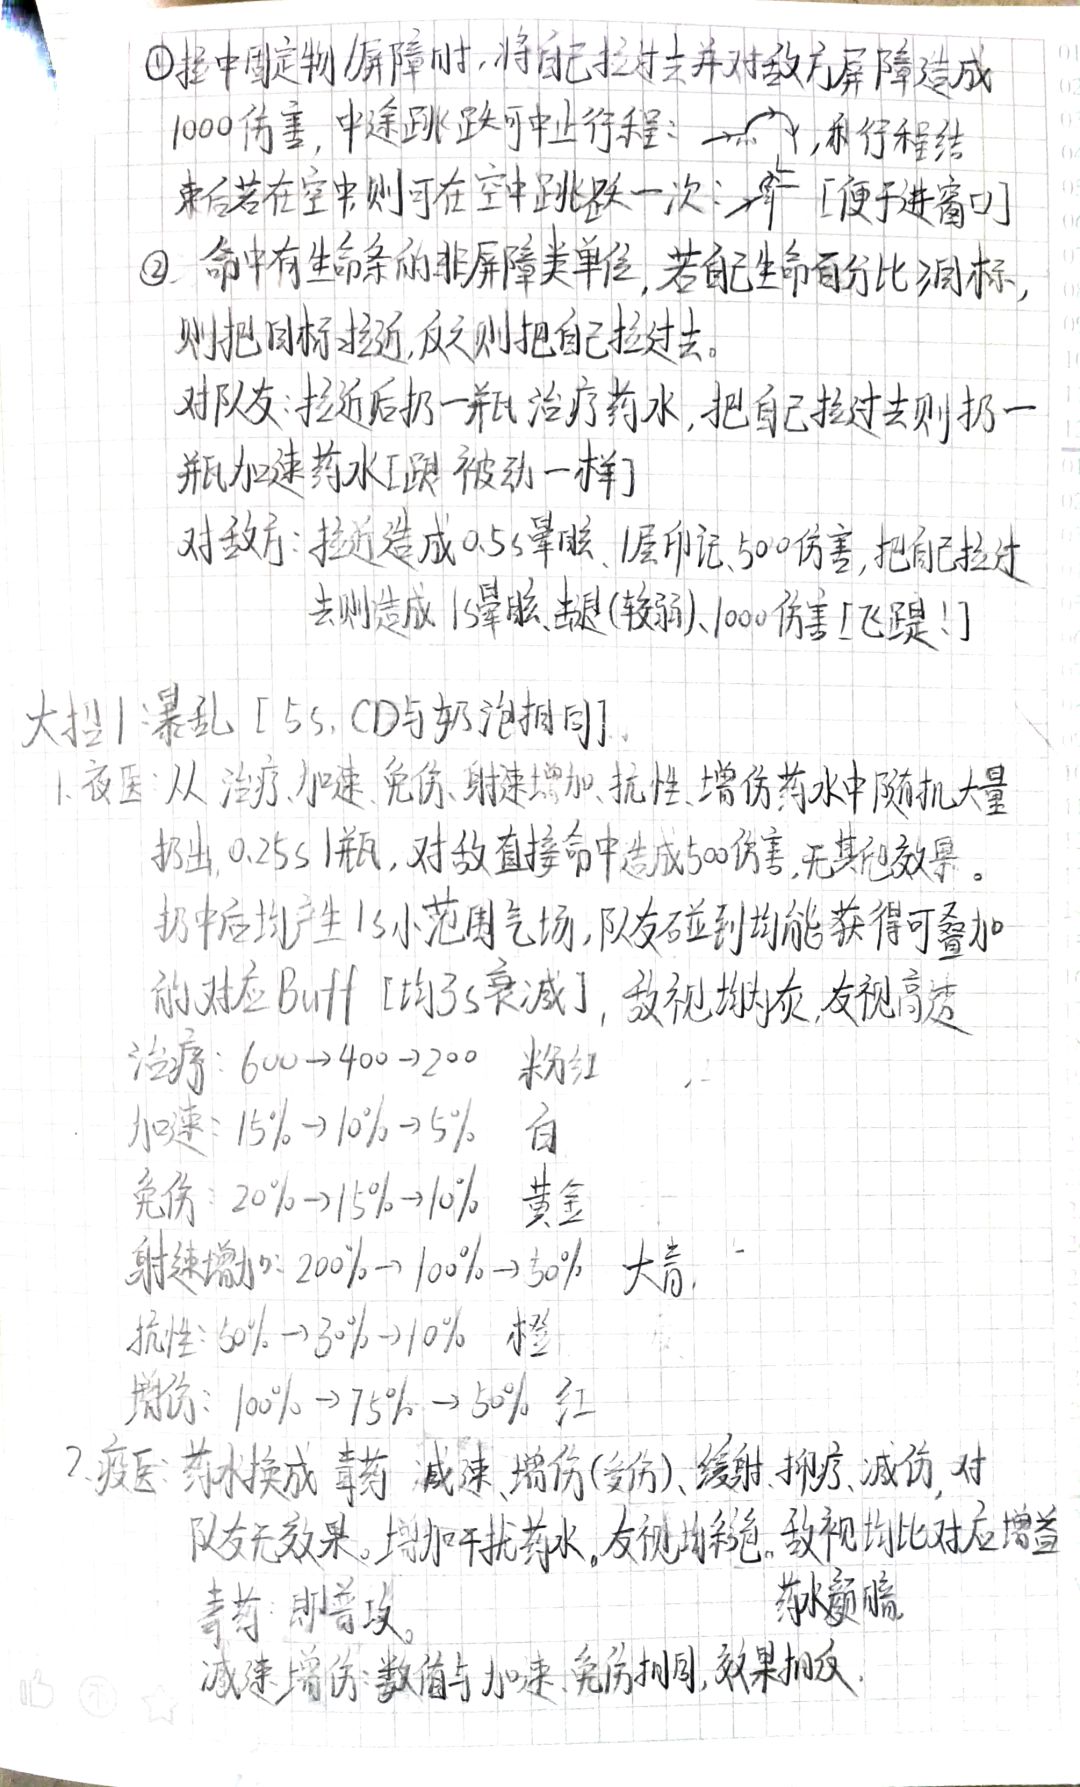 ①拉中固定物/屏障时，将自己拉过去并对敌方屏障造成
1000伤害，中途跳跃可中止行程：，和行程结
束后若在空中，则可在空中跳跃一次： [便于进窗口]
② 命中有生命条的非屏障类单位，若自己生命百分比≥目标，
则把目标拉近，反之则把自己拉过去。
对队友：拉近后扔一瓶治疗药水，把自己拉过去则扔一
瓶加速药水[跟被动一样]
对敌方：拉近造成0.5s晕眩、1层印记、500伤害，把自己拉过
去则造成1s晕眩、击退(较弱)、1000伤害[飞踢！]
大招1：暴乱 [5s，CD与奶泡相同]。
1、夜医：从治疗、加速、免伤、射速增加、抗性、增伤药水中随机大量
扔出，0.25s1瓶，对敌直接命中造成500伤害，无其他效果。
扔中后均产生1s小范围气场，队友碰到均能获得可叠加
的对应Buff [均3s衰减]，敌视均为灰，友视高透
治疗：600→400→200 粉红
加速：15%→10%→5% 白
免伤：20%→15%→10% 黄金
射速增加：200%→100%→50% 大青
抗性：50%→30%→10% 橙
增伤：100%→75%→50% 红
2、疫医：药水换成毒药、减速、增伤(受伤)、缓射、抑疗、减伤，对
队友无效果。增加干扰药水。友视均彩色。敌视均比对应增益
药水颜暗。
毒药：即普攻。
减速、增伤：数值与加速、免伤相同，效果相反.